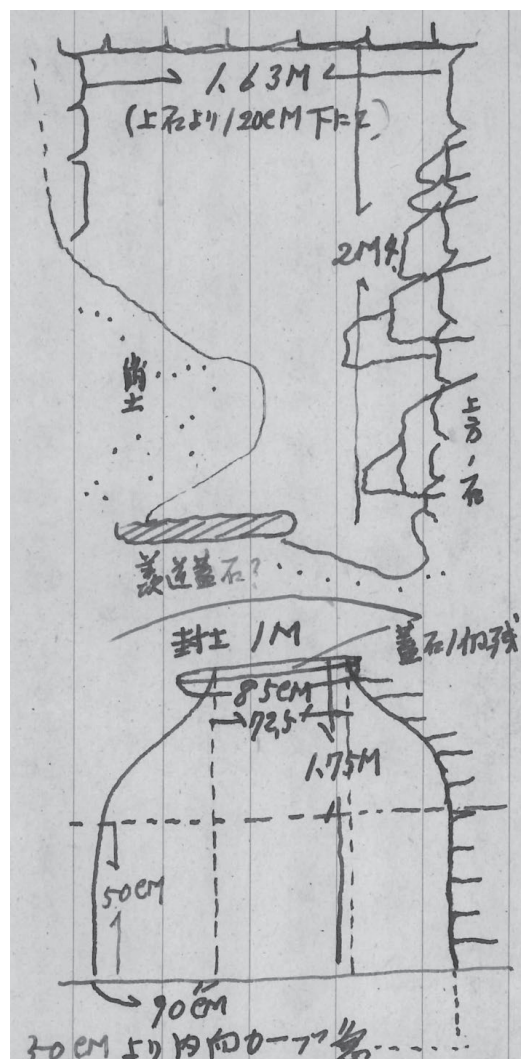 1.63M
(上石より120cM下にて)
2M4
崩土
上方ノ石
羨道蓋石?
封土 1M
蓋石1個残
85cM
72.5
1.75M
50cM
90cM
30cMより内向カーブ